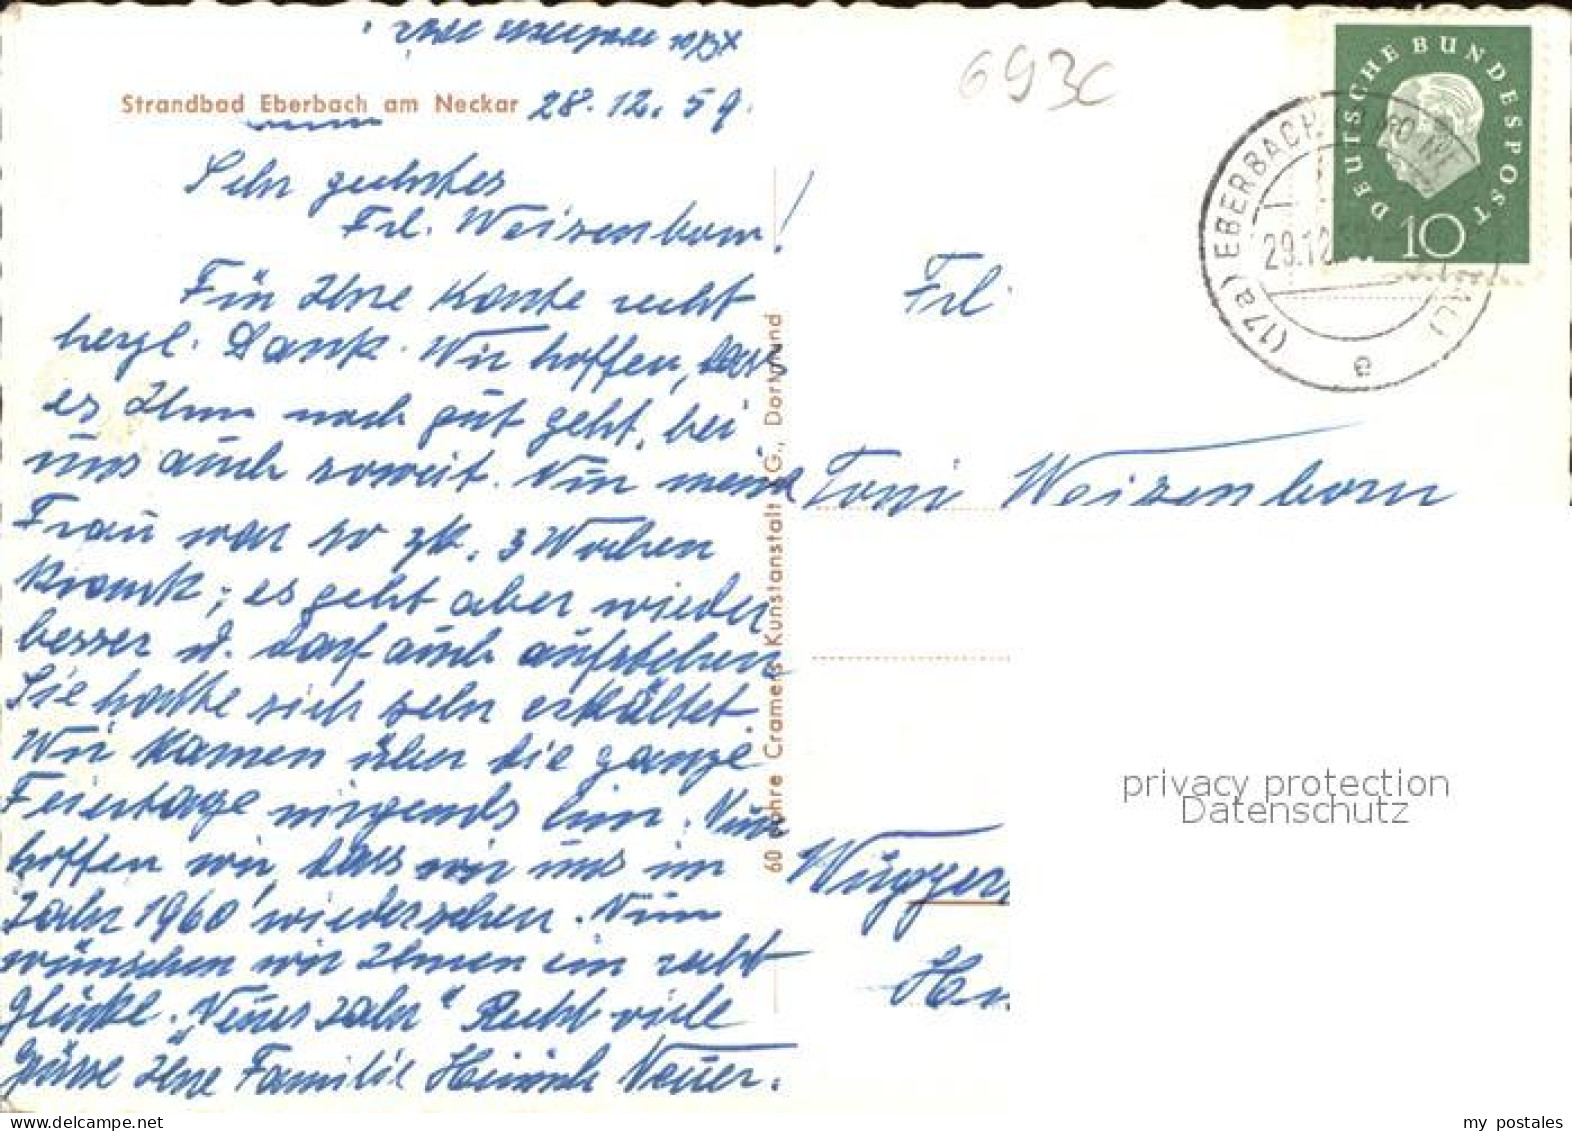 Strandbad Eberbach am Neckar 28.12.59.
693c
Sehr geehrtes
Frl. Weizenborn!
Für Ihre Karte recht
herzl. Dank. Wir hoffen, dass
es Ihnen noch gut geht, bei
uns auch soweit. Nur meine
Frau war so zk. 3 Wochen
krank; es geht aber wieder
besser u. darf auch aufstehen.
Sie hatte sich sehr erkältet.
Wir kamen über die ganze
Feiertage nirgends hin. Nun
hoffen wir, dass wir uns im
Jahr 1960 wiedersehen. Nun
wünschen wir Ihnen ein recht
Glückl. "Neues Jahr" Recht viele
Grüsse Ihre Familie Heinrich Neuer.
60 Jahre Cramers Kunstanstalt KG., Dortmund
DEUTSCHE BUNDESPOST
10
(17a) EBERBACH
29.12.
e
Frl.
Toni Weizenborn
Wupper
privacy protection
Datenschutz
my postales